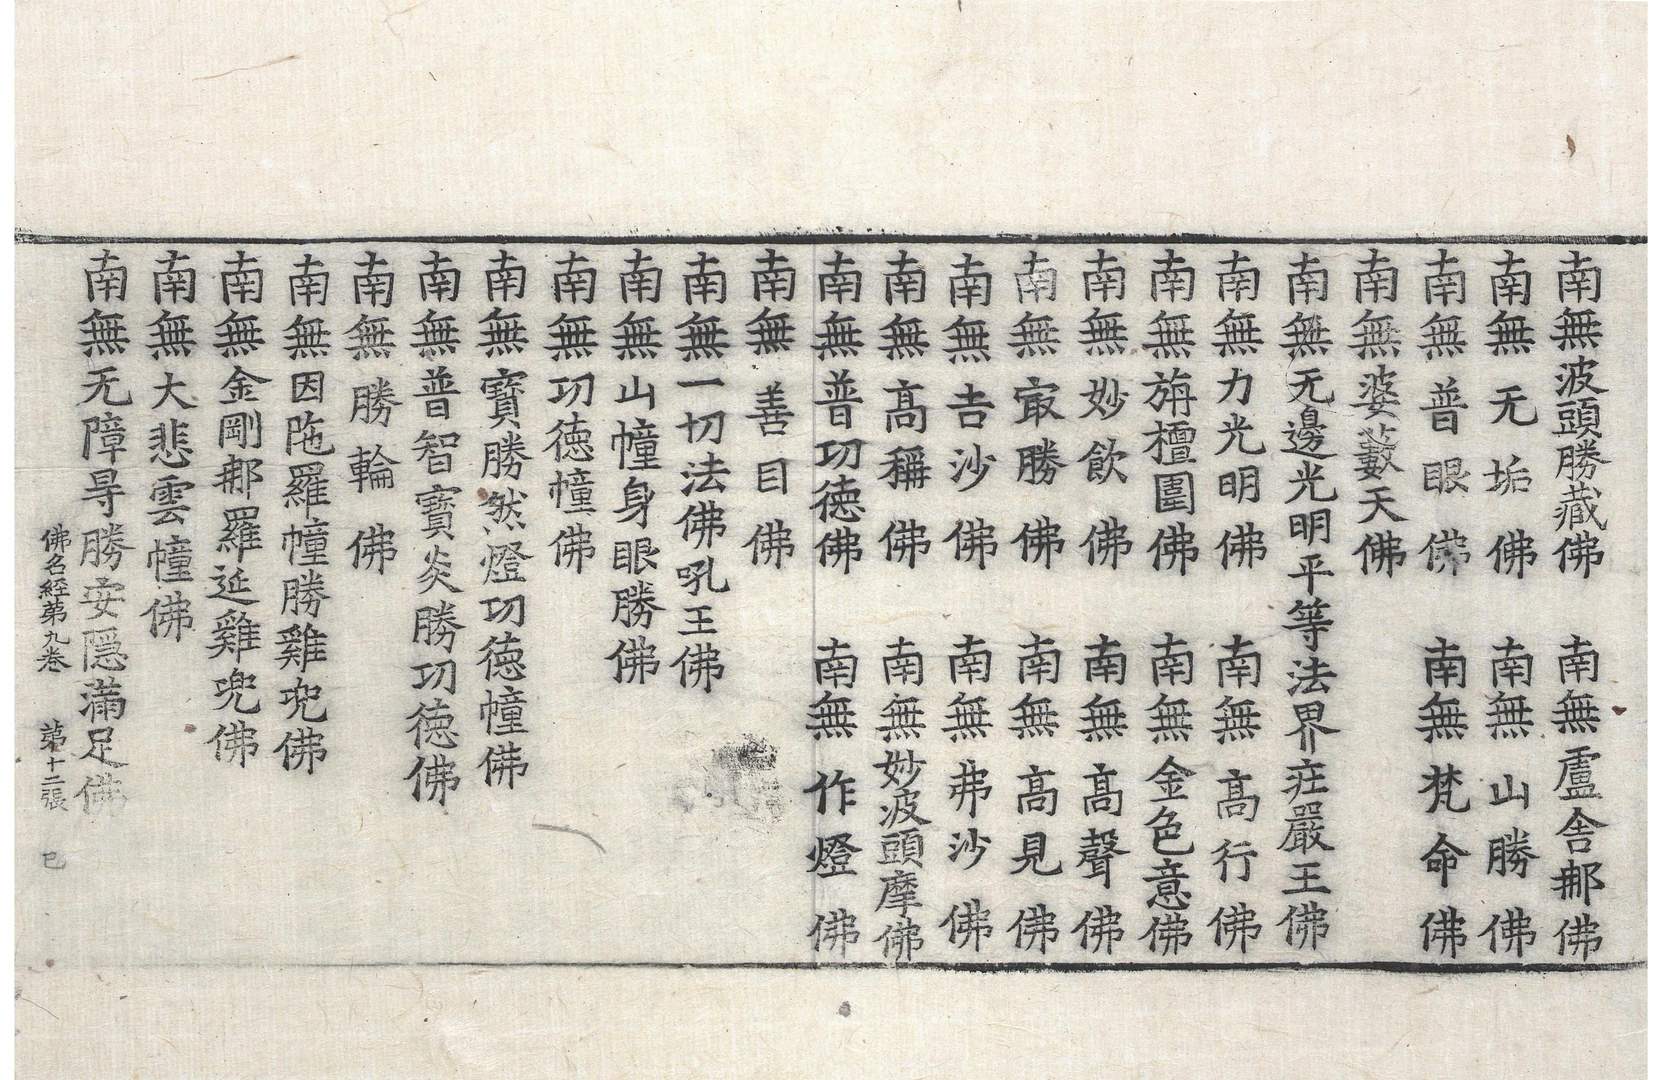 南無波頭勝藏佛　南無盧舍那佛
南無无垢佛　南無山勝佛
南無普眼佛　南無梵命佛
南無婆藪天佛
南無无邊光明平等法界庄嚴王佛
南無力光明佛　南無高行佛
南無旃檀圍佛　南無金色意佛
南無妙飲佛　南無髙聲佛
南無㝡勝佛　南無髙見佛
南無吉沙佛　南無弗沙佛
南無髙稱佛　南無妙波頭摩佛
南無普功德佛　南無作燈佛
南無善目佛
南無一切法佛吼王佛
南無山幢身眼勝佛
南無功德幢佛
南無寶勝然燈功德幢佛
南無普智寶炎勝功德佛
南無勝輪佛
南無因陁羅幢勝雞兜佛
南無金剛那羅延雞兜佛
南無大悲雲幢佛
南無无障㝵勝安隠滿足佛
佛名經第九卷　第十二張　巳